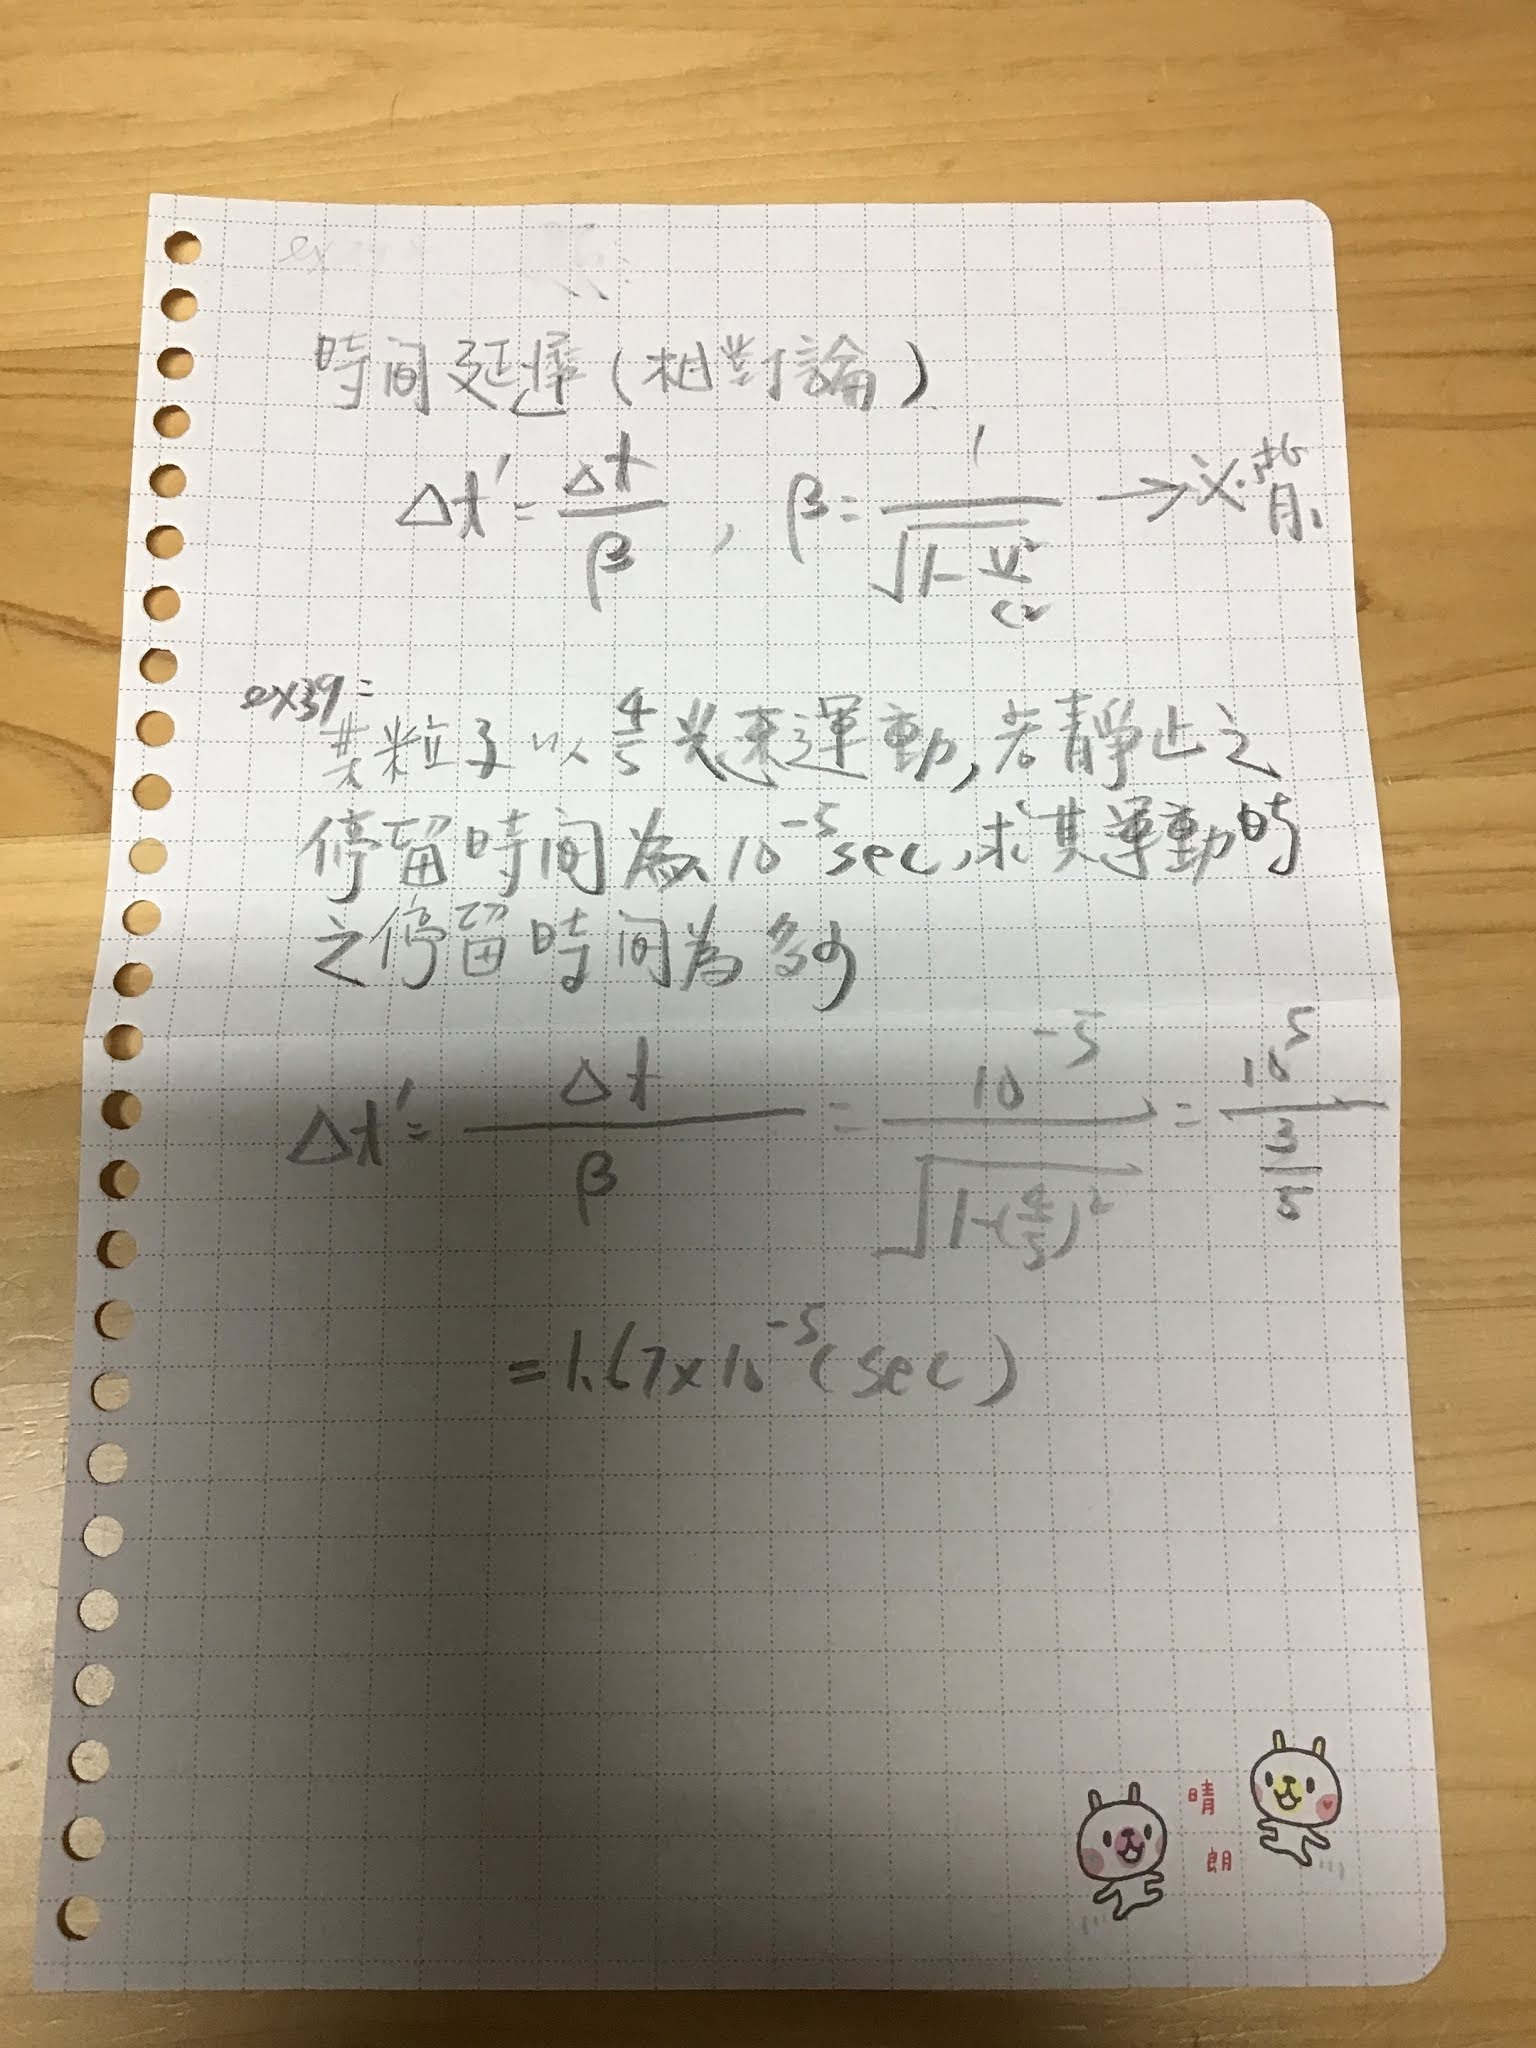 ex
時间延遲(相對論)
Δt' = Δt/β , β = 1/√(1-v²/c²) → 必背
ex39:
某粒子以 4/5 光速運動,若靜止之
停留時间為 10⁻⁵ sec,求其運動時
之停留時间為多少
Δt' = Δt/β = 10⁻⁵/√(1-(4/5)²) = 10⁵/(3/5)
= 1.67×10⁻⁵(sec)
晴
朗